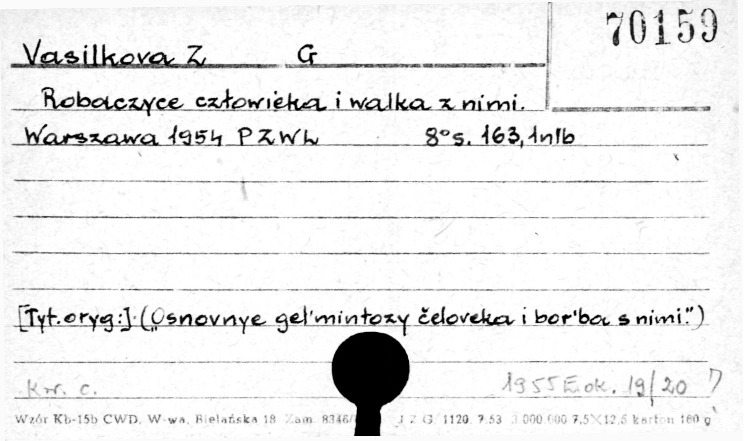 70159
Vasilkova Z G
Robaczyce człowieka i walka z nimi.
Warszawa 1954 PZWL 8° s. 163, 1nlb
[Tyt. oryg:] („Osnovnye gel'mintozy čeloveka i bor'ba s nimi.")
Kw. c. 1955 E ok. 19/20
Wzór Kb-15b CWD, W-wa, Bielańska 18 Zam. 8346/ J Z G/ 1120. 7.53 3 000 000 7,5×12,5 karton 160 g